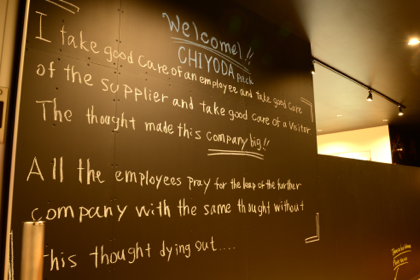 Welcome!!
CHIYODA Pitch
I take good care of an employee and take good care
of the supplier and take good care of a visitor
The thought made this company big!!
All the employees pray for the leap of the further
company with the same thought without
this thought dying out....